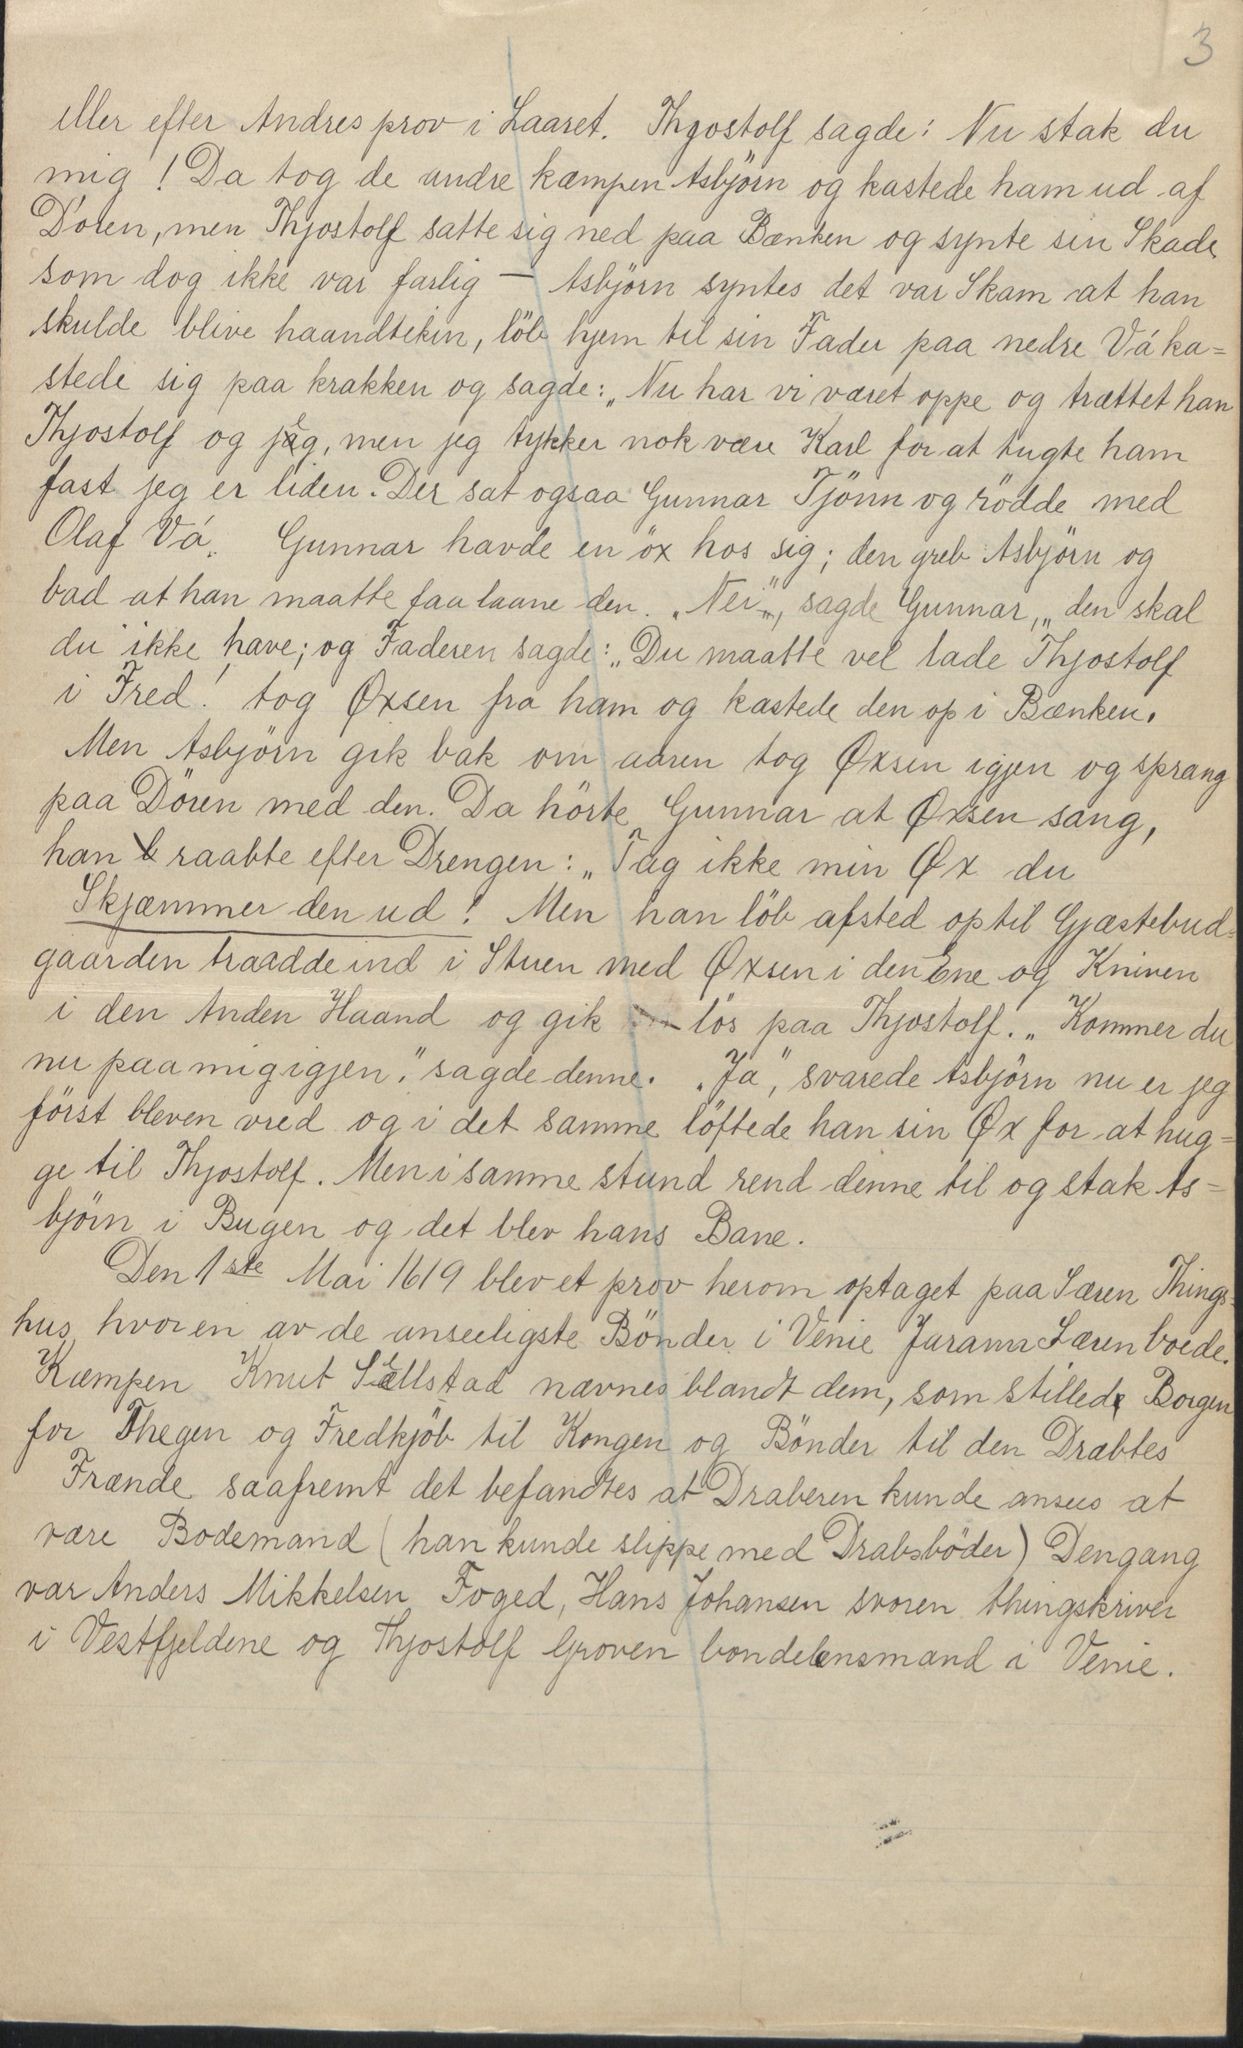 3
eller efter Andres prov i Laaret. Thjostolf sagde: Nu stak du
mig! Da tog de andre kæmpen Asbjörn og kastede ham ud af
Dören, men Thjostolf satte sig ned paa Bænken og synte sin Skade
som dog ikke var farlig — Asbjörn syntes det var Skam at han
skulde blive haandtekin, löb hjem til sin Fader paa nedre Vá ka=
stede sig paa krakken og sagde: „Nu har vi været oppe og trættet han
Thjostolf og jeg, men jeg tykker nok være Karl for at tugte ham
fast jeg er liden. Der sat ogsaa Gunnar Tjönn og rödde med
Olaf Vá. Gunnar havde en öx hos sig; den greb Asbjörn og
bad at han maatte faa laane den. „Nei", sagde Gunnar, „den skal
du ikke have; og Faderen sagde: „Du maatte vel lade Thjostolf
i Fred! tog Øxsen fra ham og kastede den op i Bænken.
Men Asbjörn gik bak om aaren tog Øxsen igjen og sprang
paa Dören med den. Da hörte Gunnar at Øxsen sang,
han raabte efter Drengen: „Tag ikke min Øx du
Skjæmmer den ud! Men han löb afsted op til Gjæstebud=
gaarden traadde ind i Stuen med Øxsen i den Ene og Kniven
i den Anden Haand og gik lös paa Thjostolf. „Kommer du
nu paa mig igjen", sagde denne. „Ja", svarede Asbjörn nu er jeg
först bleven vred og i det samme löftede han sin Øx for at hug=
ge til Thjostolf. Men i samme stund rend denne til og stak As=
björn i Bugen og det blev hans Bane.
Den 1ste Mai 1619 blev et prov herom optaget paa Særen Things=
hus, hvor en av de anseeligste Bönder i Vinie Jarann Særen boede.
Kæmpen Knut Sællstad nævnes blandt dem, som stillede Borgen
for Thegen og Fredkjöb til Kongen og Bönder til den Dræbtes
Frænde saafremt det befandtes at Draberen kunde ansees at
være Bodemand (han kunde slippe med Drabsböder) Dengang
var Anders Mikkelsen Foged, Hans Johansen svoren thingskriver
i Vestfjeldene og Thjostolf Groven bondelensmand i Vinie.